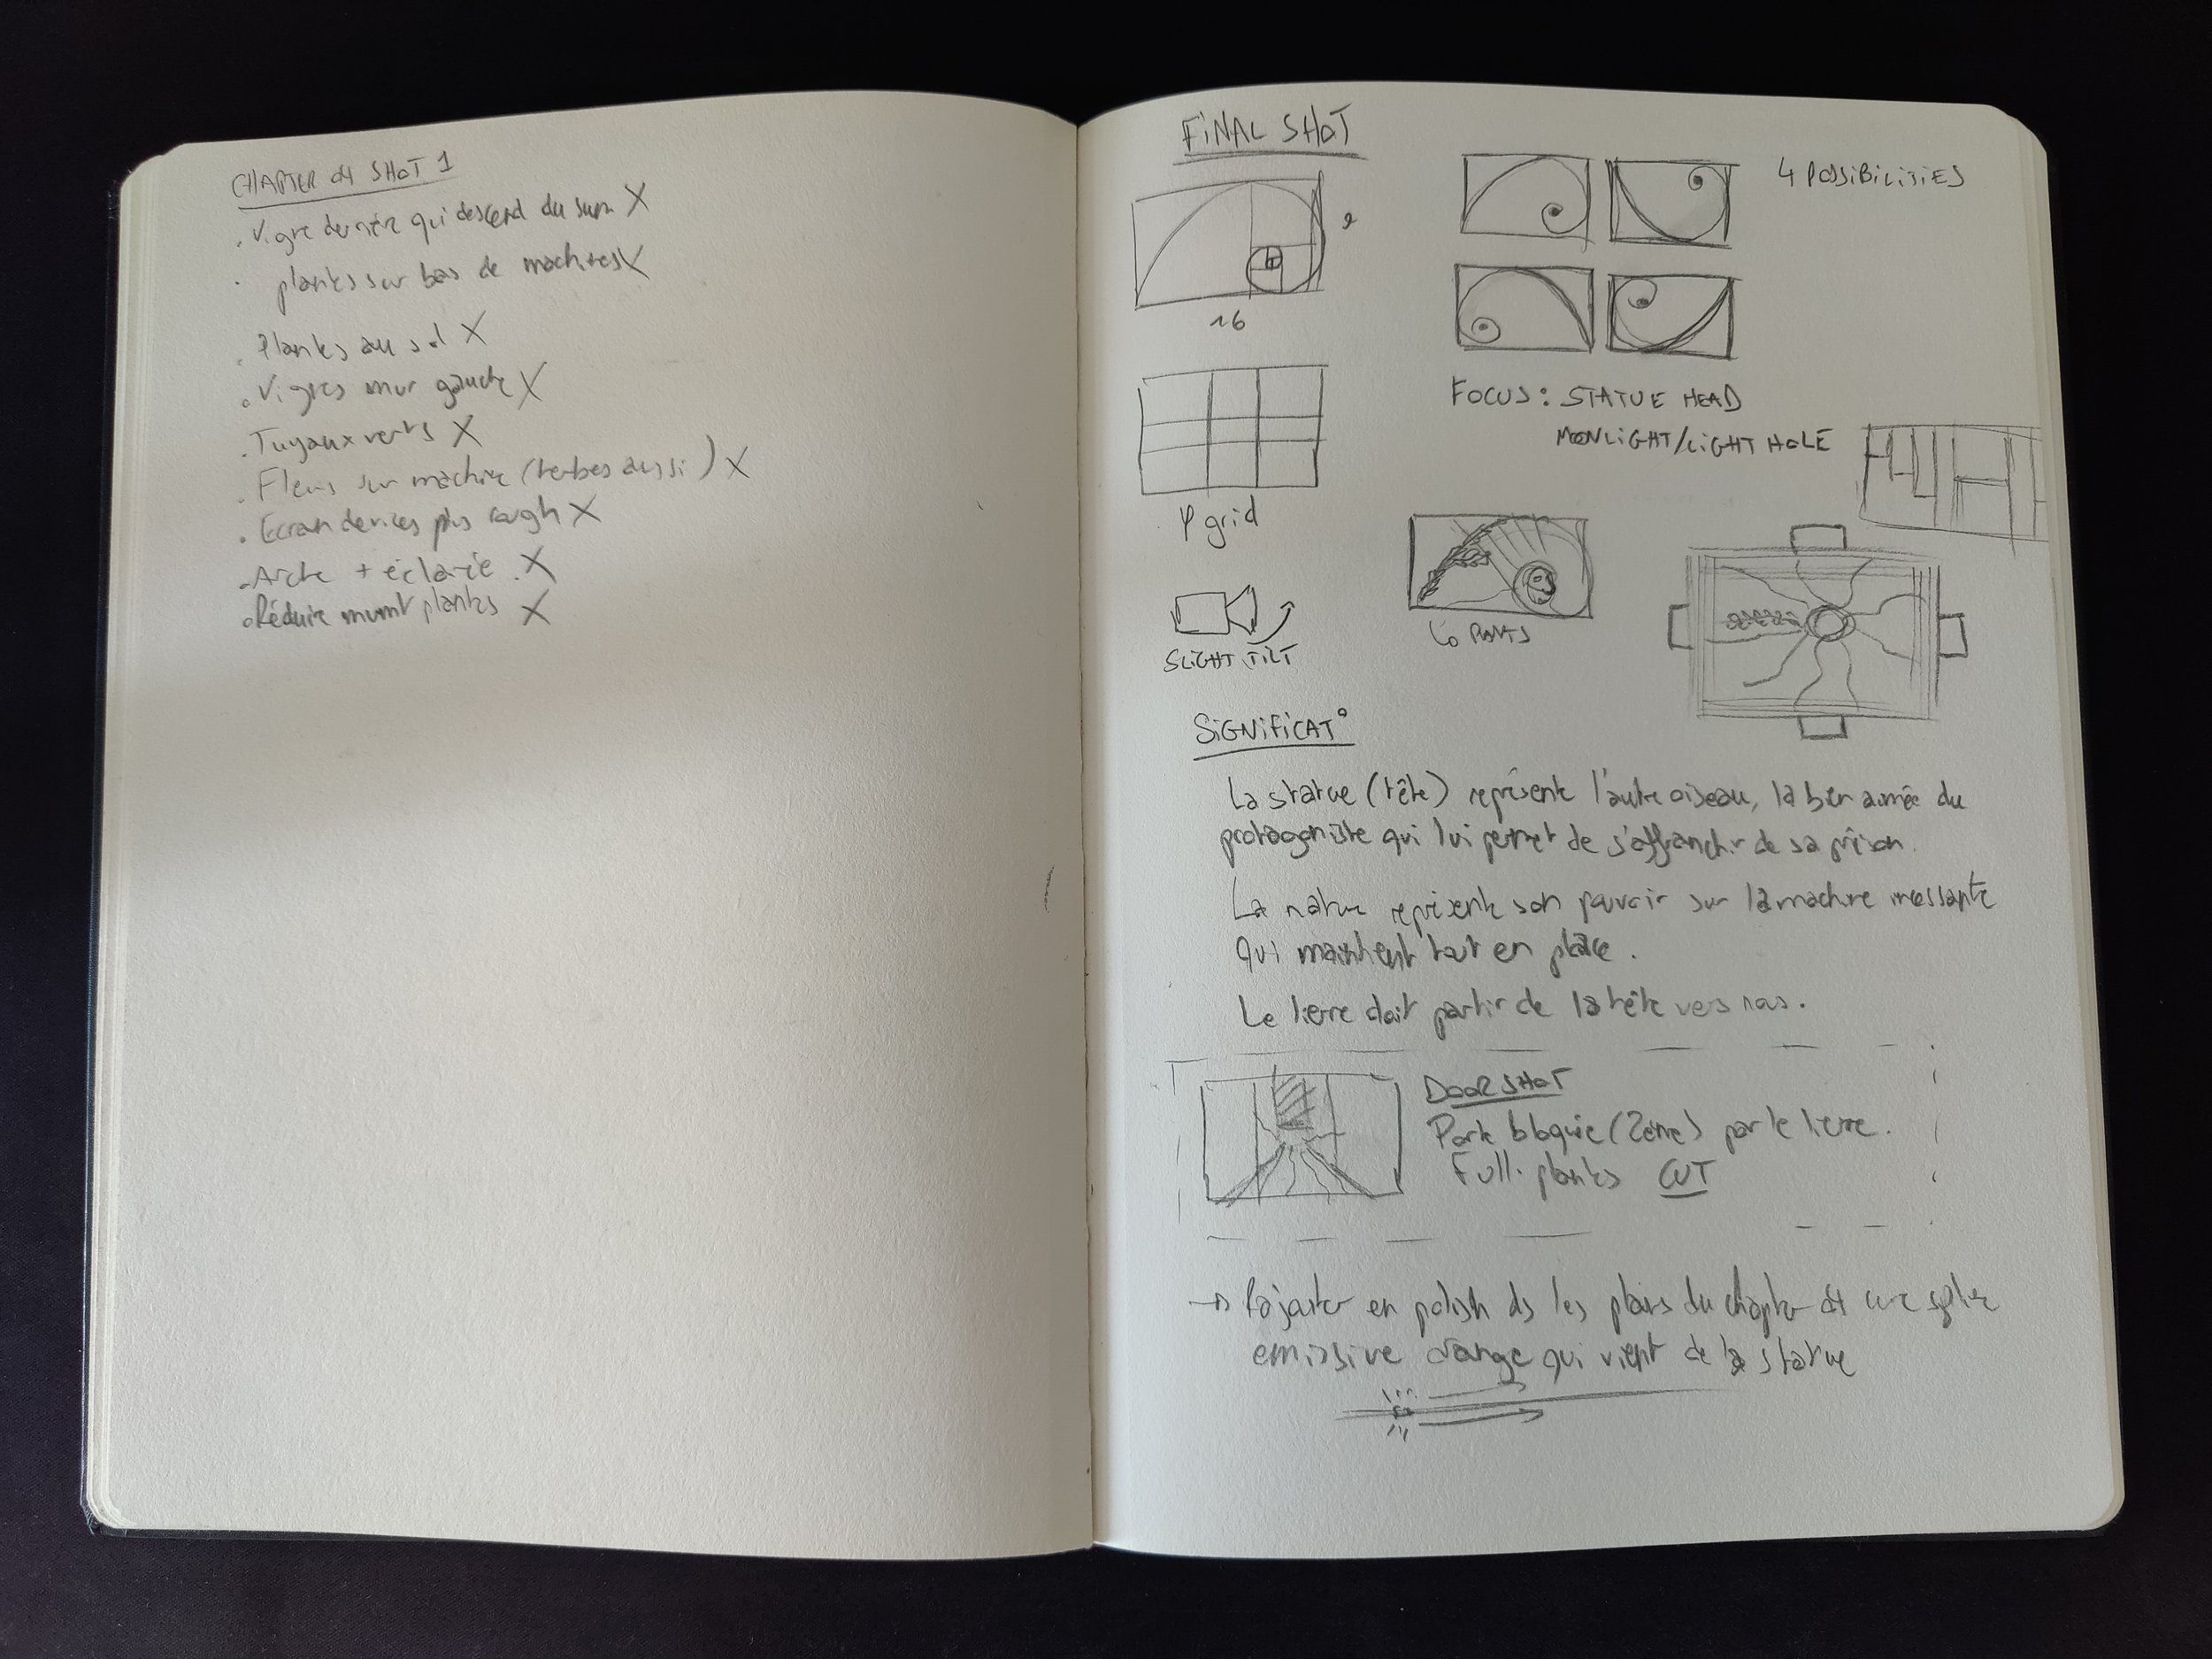 CHAPTER 04 SHOT 1
. Vigne derrière qui descend du X
. plantes sur bas de machines X
. Plantes au sol X
. Vignes mur gauche X
. Tuyaux verts X
. Fleurs sur machine (herbes aussi) X
. Ecran devices plus rough X
. Arche + éclairée. X
. Réduire mvmt plantes X
FINAL SHOT
9
16
4 POSSIBILITIES
φ grid
FOCUS: STATUE HEAD
MOONLIGHT/LIGHT HOLE
SLIGHT TILT
SIGNIFICAT°
La statue (tête) représente l'autre oiseau, la bien aimée du
protagoniste qui lui permet de s'affranchir de sa prison.
La nature représente son pouvoir sur la machine incessante
qui maintient tout en place.
Le lierre doit partir de la tête vers nous.
DOOR SHOT
Porte bloquée (2ème) par le lierre.
Full plantes CUT
→ Rajouter en polish ds les plans du chapter 04 une
emissive orange qui vient de la statue